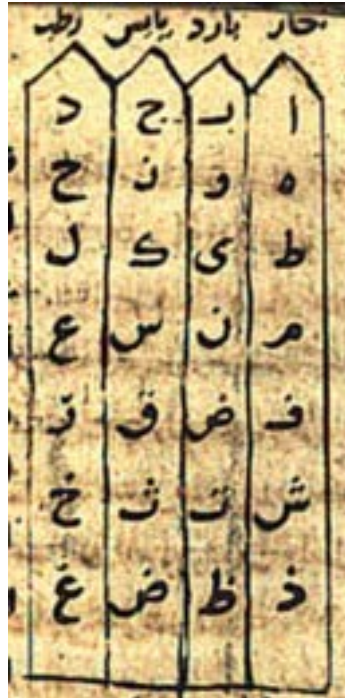 حار بارد يابس رطب
ا ب ج د
ه و ز ح
ط ى ك ل
م ن س ع
ف ض ق ر
ش ت ث خ
ذ ظ ض غ